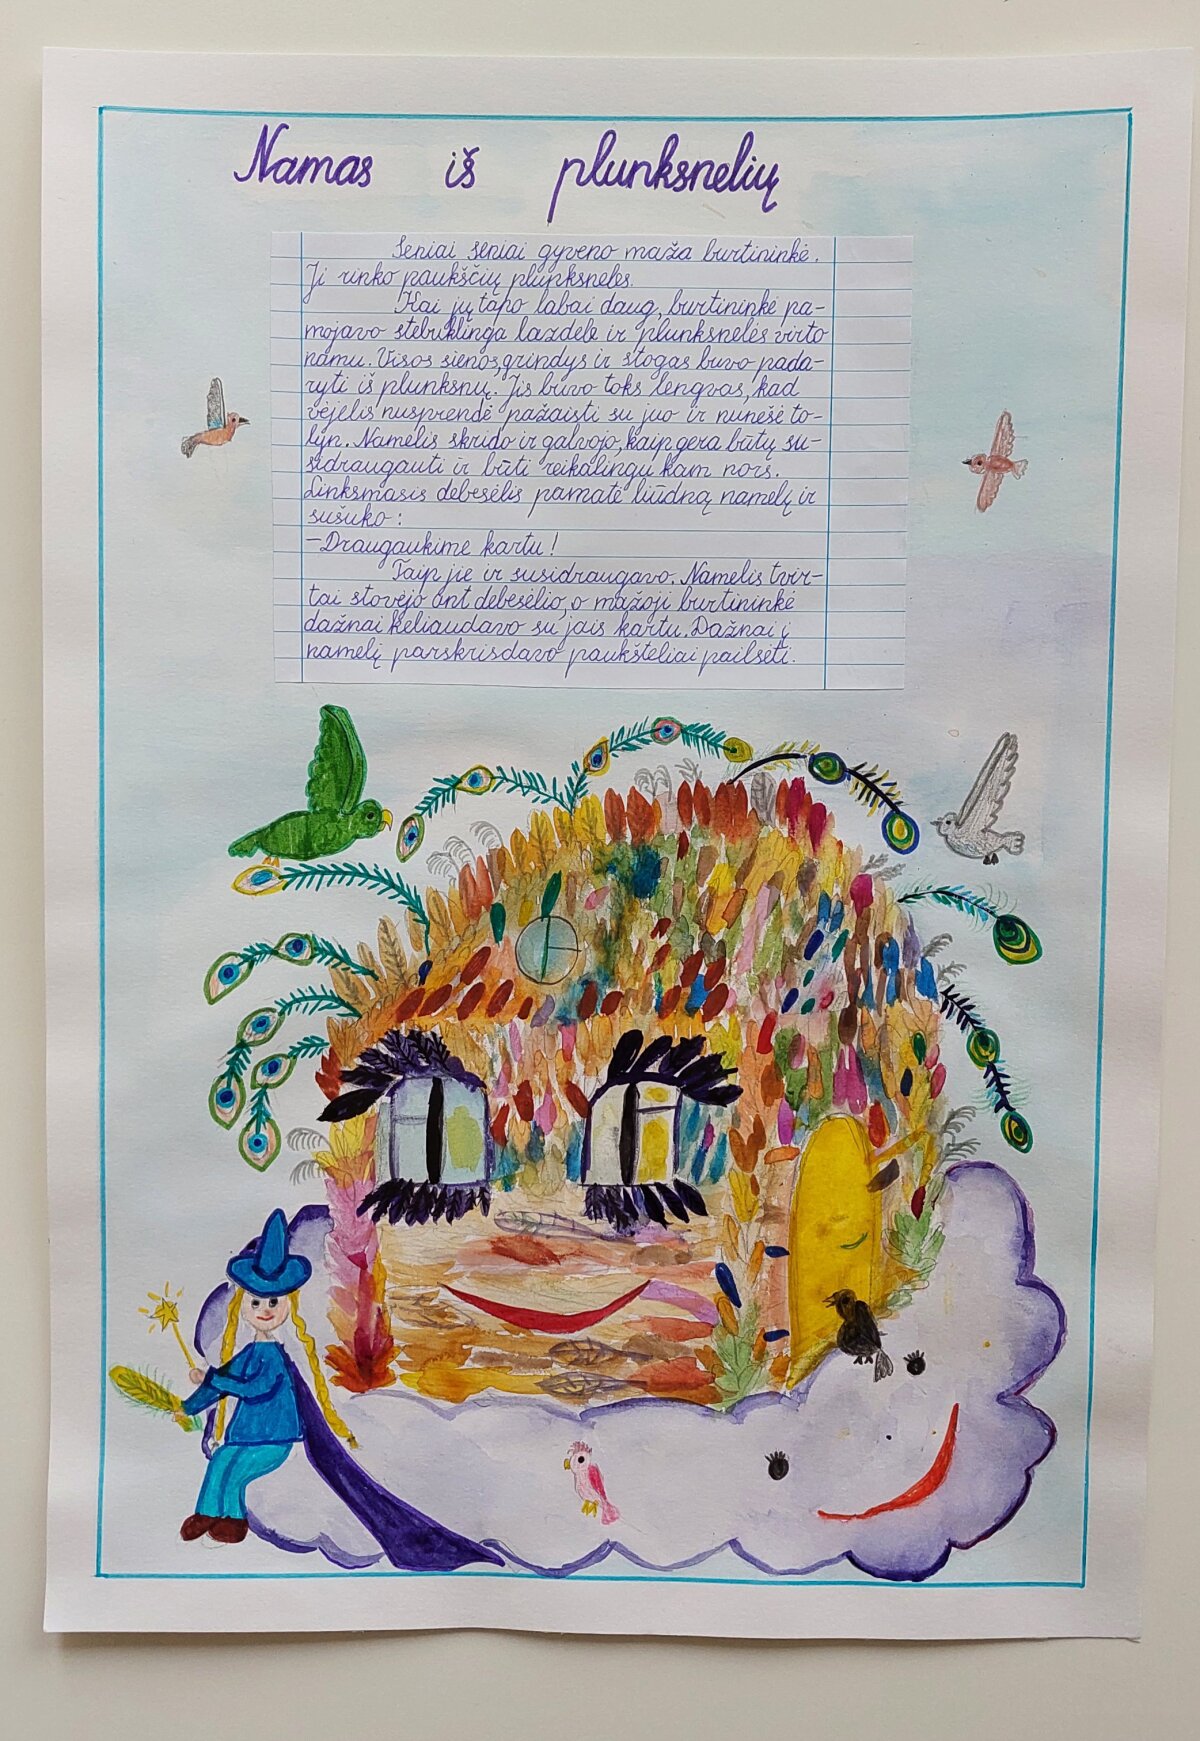 Namas iš plunksnelių
Seniai seniai gyveno maža burtininkė.
Ji rinko paukščių plunksneles.
Kai jų tapo labai daug, burtininkė pa-
mojavo stebuklinga lazdele ir plunksnelės virto
namu. Visos sienos, grindys ir stogas buvo pada-
ryti iš plunksnų. Jis buvo toks lengvas, kad
vėjelis nusprendė pažaisti su juo ir nunešė to-
lyn. Namelis skrido ir galvojo, kaip gera būtų su-
sidraugauti ir būti reikalingu kam nors.
Linksmasis debesėlis pamatė liūdną namelį ir
sušuko:
-Draugaukime kartu!
Taip jie ir susidraugavo. Namelis tvir-
tai stovėjo ant debesėlio, o mažoji burtininkė
dažnai keliaudavo su jais kartu. Dažnai į
namelį parskrisdavo paukšteliai pailsėti.